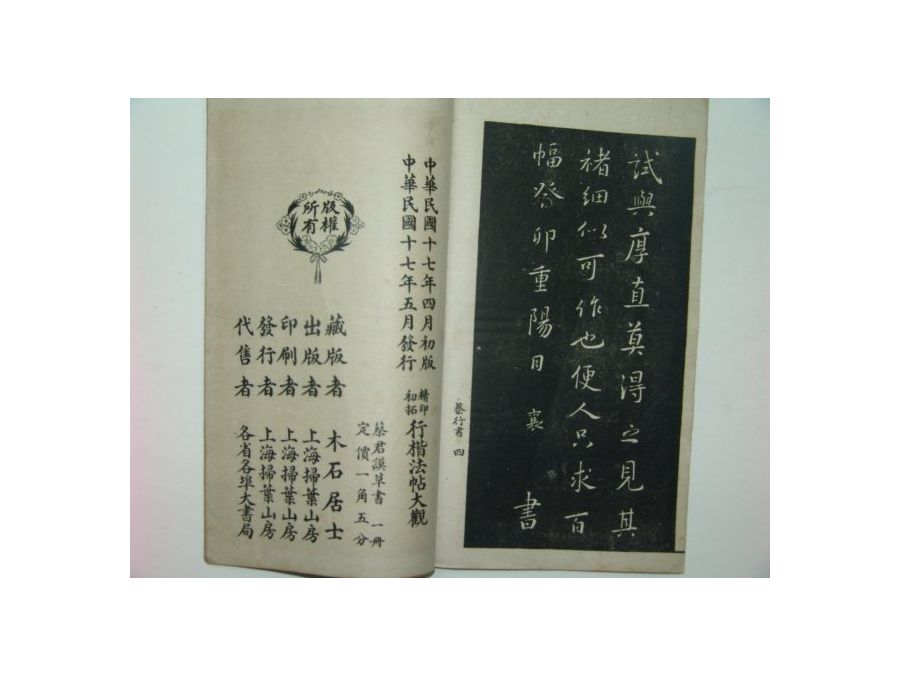 試與厚直莫得之見其
褚細似可作也便人只求百
幅癸卯重陽日 襄 書
蔡行書 四
中華民國十七年四月初版
中華民國十七年五月發行
精印
初拓
行楷法帖大觀
蔡君謨草書 一册
定價一角五分
版權
所有
藏版者 木石居士
出版者 上海掃葉山房
印刷者 上海掃葉山房
發行者 上海掃葉山房
代售者 各省各埠大書局